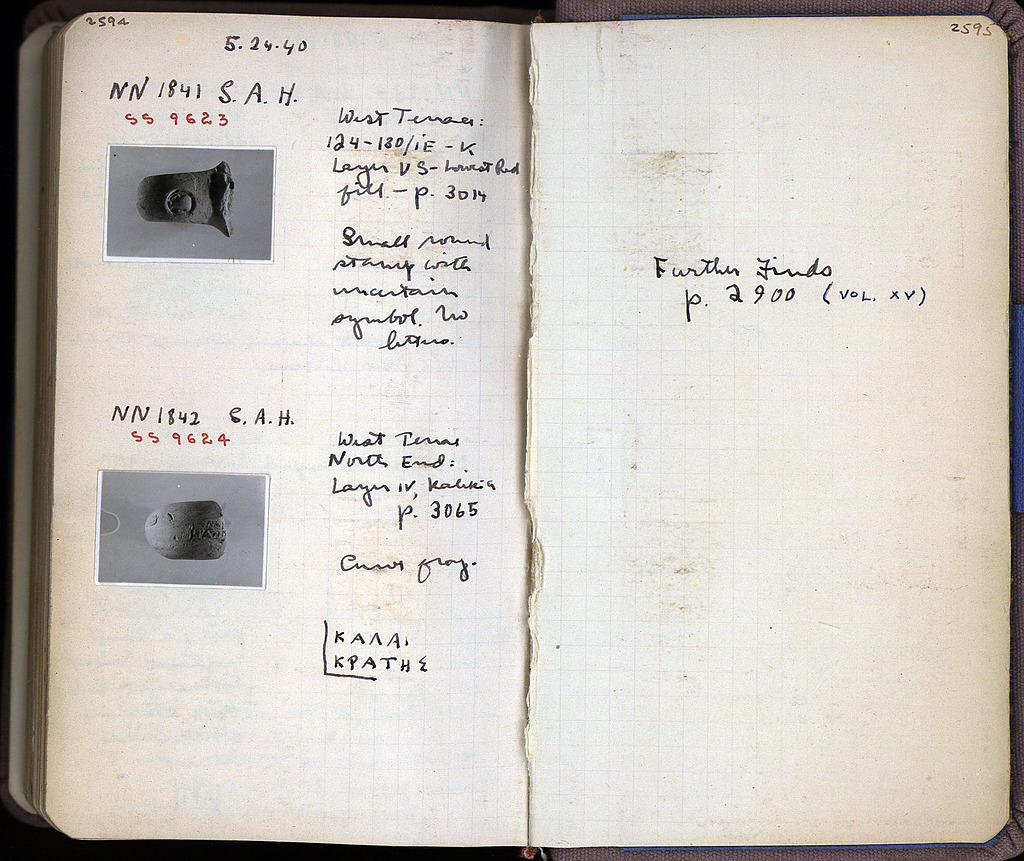 2594
5.24.40
NN 1841 S. A. H.
SS 9623
West Terrace:
124-130/IE - K
Layer V S - Lowest Red
fill - p. 3014
Small round
stamp with
uncertain
symbol. No
letters.
NN 1842 S. A. H.
SS 9624
West Terrace
North End:
Layer IV,
p. 3065
frag.
ΚΑΛΛΙ
ΚΡΑΤΗΣ
2595
Further Finds
p. 2900 (VOL. XV)